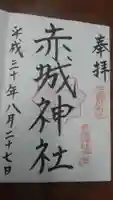 奉拝
赤城神社
平成三十年八月二十七日